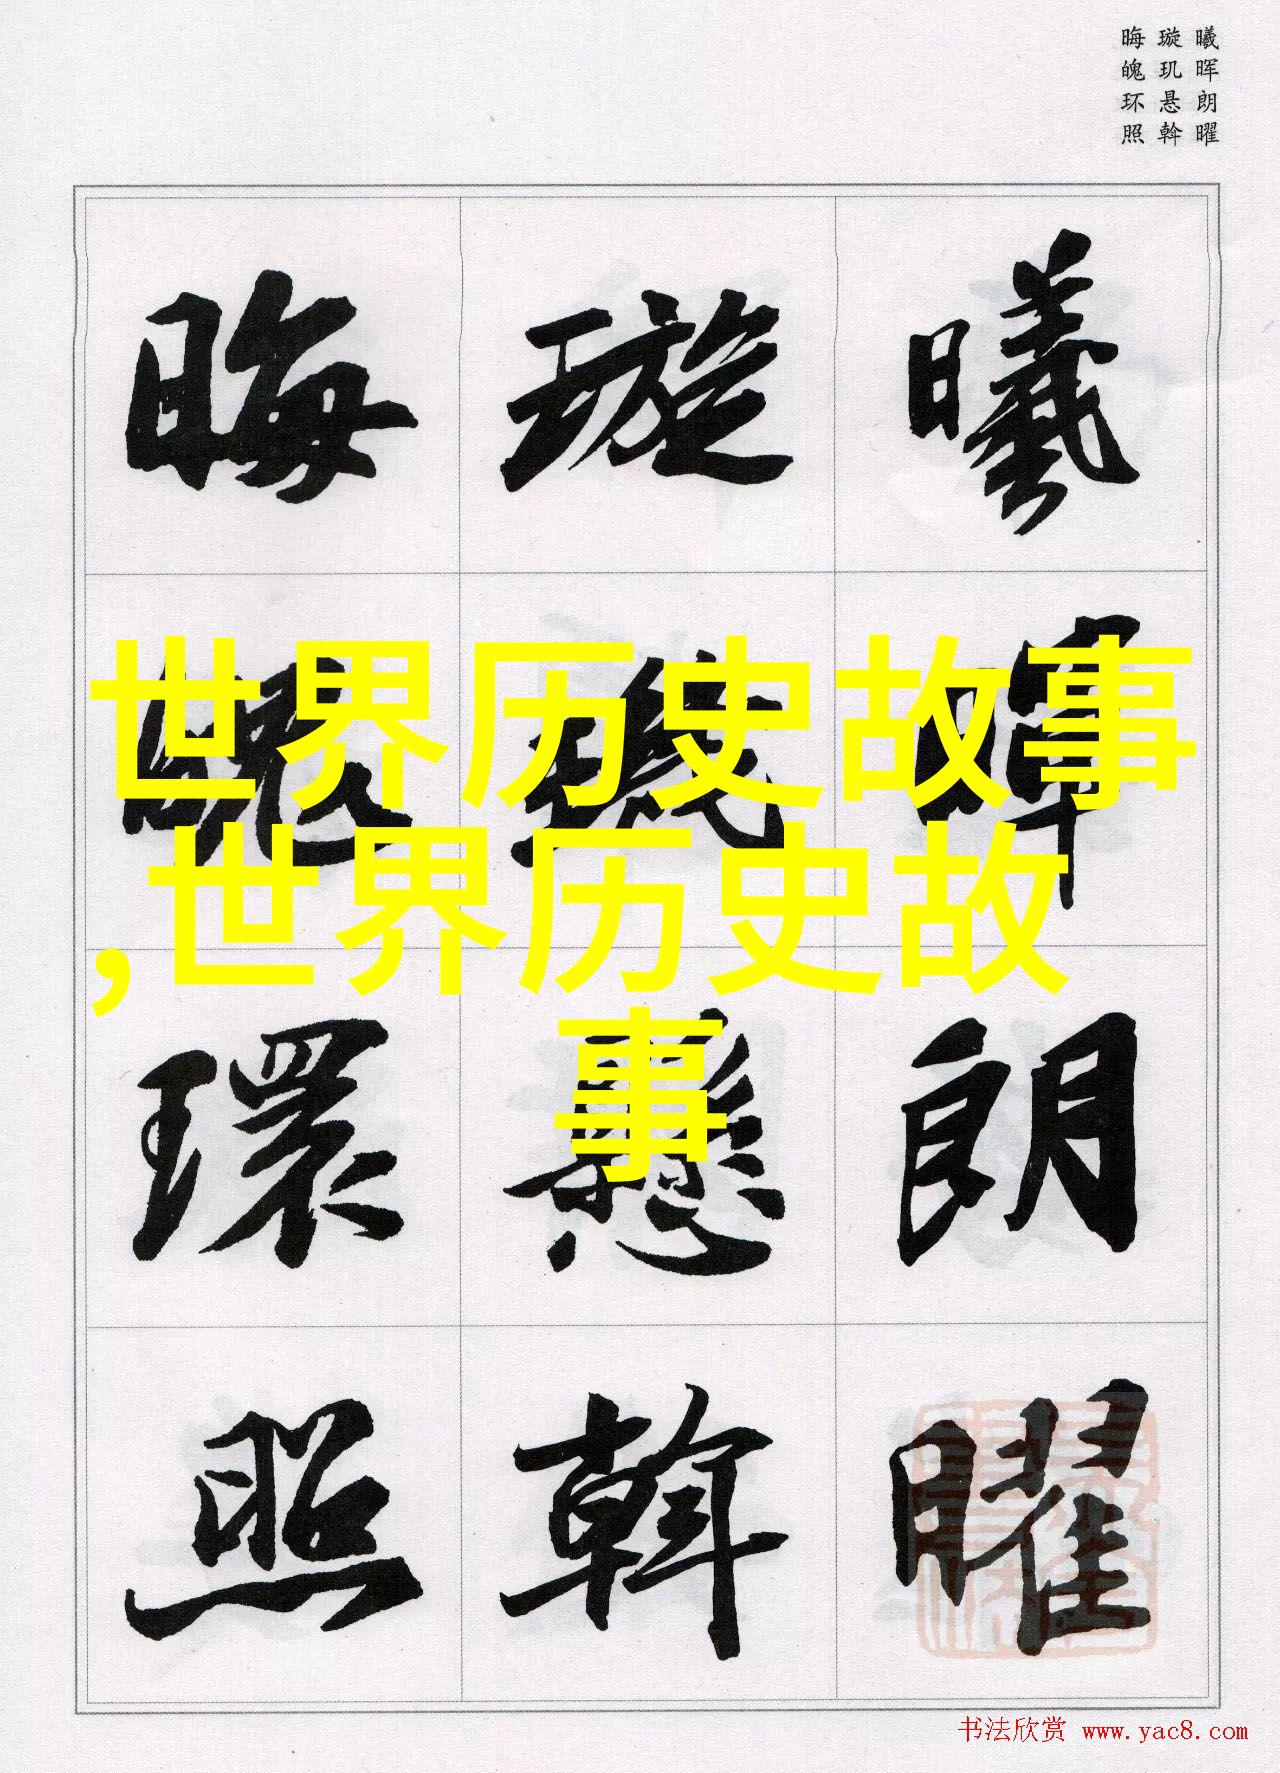 曦晖朗曜
璇玑悬斡
晦魄环照
曦暉朗曜
璇璣懸斡
晦魄環照
世界历史故事
,世界历史故
事
书法欣赏 www.yac8.com